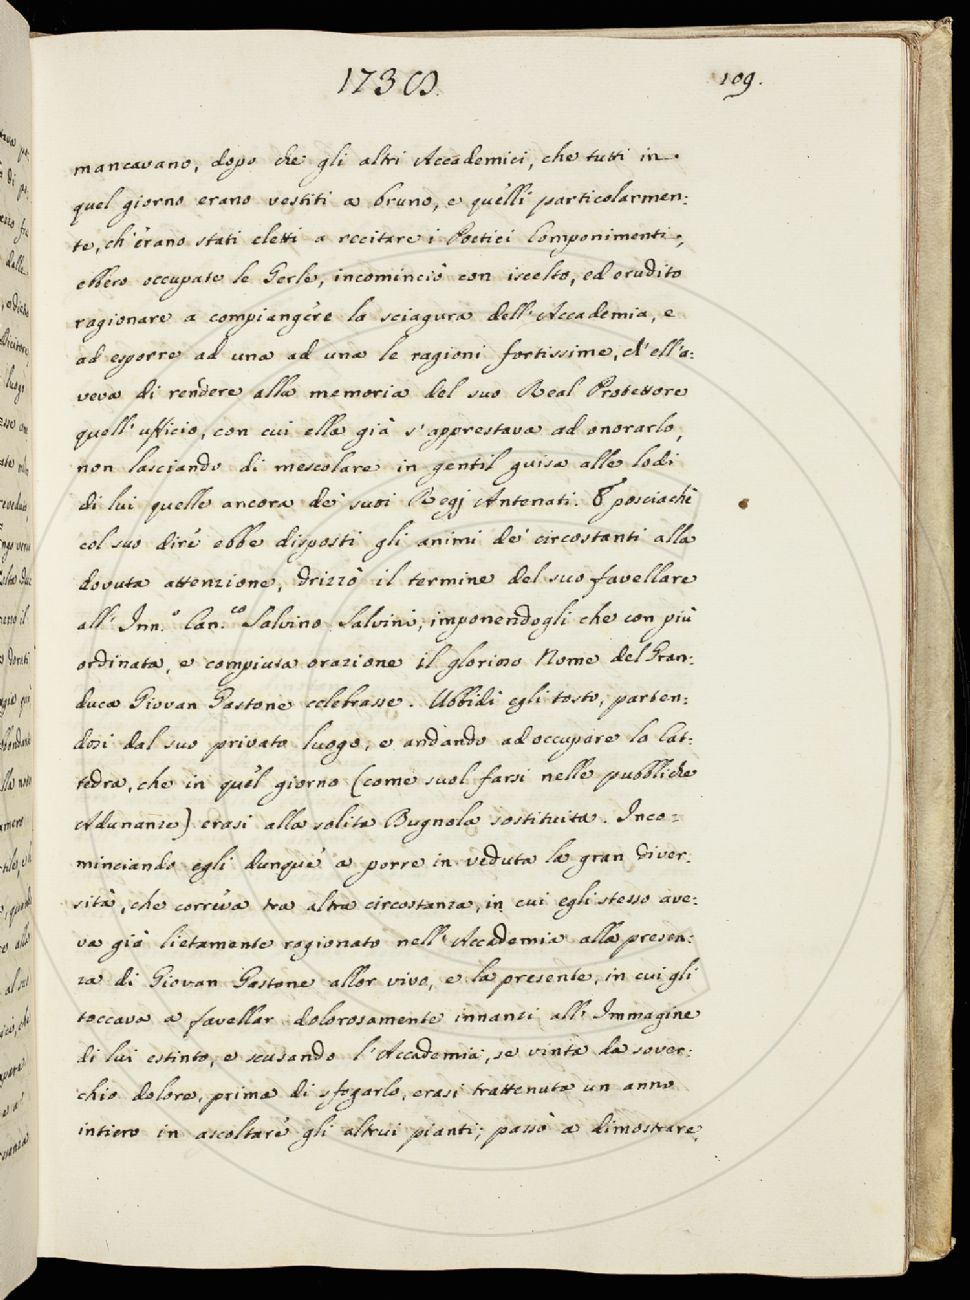 1738. 109.
mancavano, dopo che gli altri Accademici, che tutti in
quel giorno erano vestiti a bruno, e quelli particolarmen:
te, ch'erano stati eletti a recitare i Poetici Componimenti,
ebbero occupate le Gerle, incominciò con iscelto, ed erudito
ragionare a compiangere la sciagura dell'Accademia, e
ad esporre ad una ad una le ragioni fortissime, ch'ell'a:
veva di rendere alla memoria del suo Real Protettore
quell'ufficio, con cui ella già s'apprestava ad onorarlo,
non lasciando di mescolare in gentil guisa alle lodi
di lui quelle ancora de' suoi Regj Antenati. E posciachè
col suo dire ebbe disposti gli animi de' circostanti alla
dovuta attenzione, drizzò il termine del suo favellare
all'Inn.º Can.co Salvino Salvini, imponendogli che con più
ordinata, e compiuta orazione il glorioso Nome del Gran:
duca Giovan Gastone celebrasse. Ubbidì egli tosto, parten:
dosi dal suo privato luogo, e andando ad occupare la Cat:
tedra, che in quel giorno (come suol farsi nelle pubbliche
Adunanze) erasi alla solita Bugnola sostituita. Inco=
minciando egli dunque a porre in veduta la gran diver:
sità, che correva tra altra circostanza, in cui egli stesso ave:
va già lietamente ragionato nell'Accademia alla presen:
za di Giovan Gastone allor vivo, e la presente, in cui gli
toccava a favellar dolorosamente innanzi all'Immagine
di lui estinto, e scusando l'Accademia, se vinta da sover:
chio dolore, prima di sfogarlo, erasi trattenuta un anno
intiero in ascoltare gli altrui pianti; passò a dimostrare,